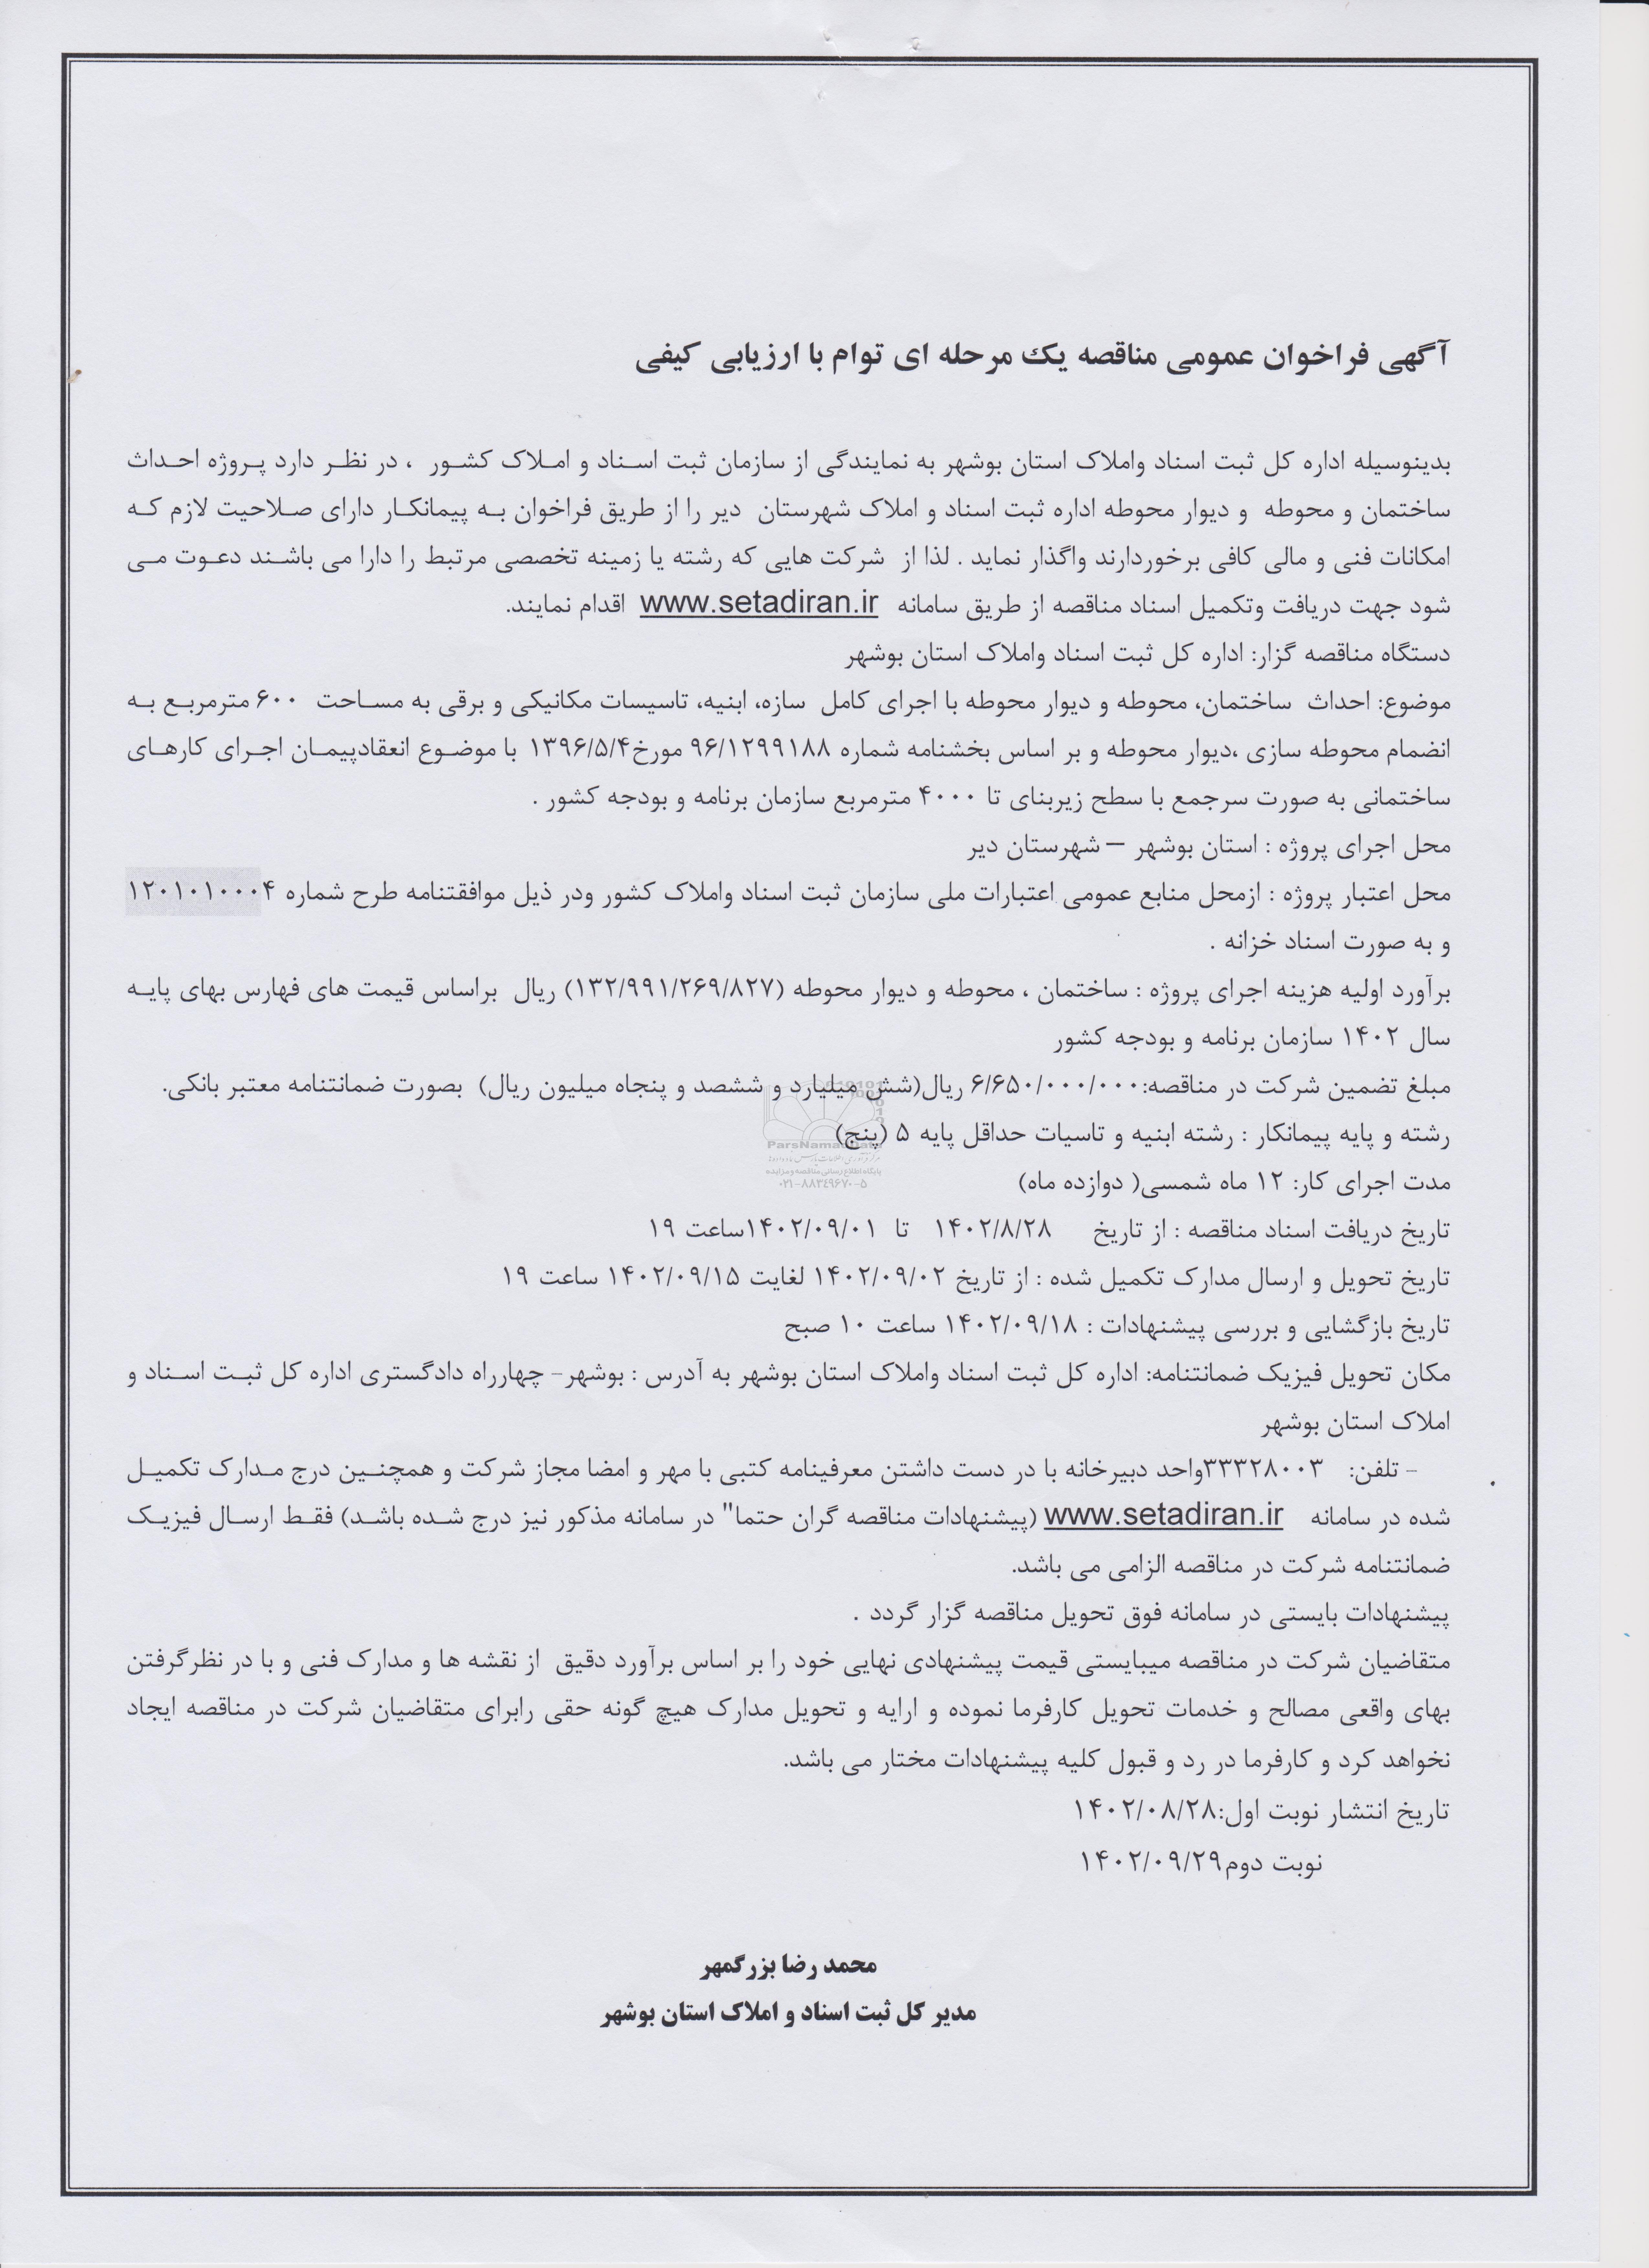 آگهی فراخوان عمومی مناقصه یک مرحله ای توام با ارزیابی کیفی
بدینوسیله اداره کل ثبت اسناد واملاک استان بوشهر به نمایندگی از سازمان ثبت اسناد و املاک کشور ، در نظر دارد پروژه احداث
ساختمان و محوطه و دیوار محوطه اداره ثبت اسناد و املاک شهرستان دیر را از طریق فراخوان به پیمانکار دارای صلاحیت لازم که
امکانات فنی و مالی کافی برخوردارند واگذار نماید . لذا از شرکت هایی که رشته یا زمینه تخصصی مرتبط را دارا می باشند دعوت می
شود جهت دریافت وتکمیل اسناد مناقصه از طریق سامانه www.setadiran.ir اقدام نمایند.
دستگاه مناقصه گزار: اداره کل ثبت اسناد واملاک استان بوشهر
موضوع: احداث ساختمان، محوطه و دیوار محوطه با اجرای کامل سازه، ابنیه، تاسیسات مکانیکی و برقی به مساحت ۶۰۰ مترمربع به
انضمام محوطه سازی ،دیوار محوطه و بر اساس بخشنامه شماره ۹۶/۱۲۹۹۱۸۸ مورخ۱۳۹۶/۵/۴ با موضوع انعقادپیمان اجرای کارهای
ساختمانی به صورت سرجمع با سطح زیربنای تا ۴۰۰۰ مترمربع سازمان برنامه و بودجه کشور .
محل اجرای پروژه : استان بوشهر – شهرستان دیر
محل اعتبار پروژه : ازمحل منابع عمومی اعتبارات ملی سازمان ثبت اسناد واملاک کشور ودر ذیل موافقتنامه طرح شماره ۱۲۰۱۰۱۰۰۰۴
و به صورت اسناد خزانه .
برآورد اولیه هزینه اجرای پروژه : ساختمان ، محوطه و دیوار محوطه (۱۳۲/۹۹۱/۲۶۹/۸۲۷) ریال براساس قیمت های فهارس بهای پایه
سال ۱۴۰۲ سازمان برنامه و بودجه کشور
مبلغ تضمین شرکت در مناقصه:۶/۶۵۰/۰۰۰/۰۰۰ ریال(شش میلیارد و ششصد و پنجاه میلیون ریال) بصورت ضمانتنامه معتبر بانکی.
رشته و پایه پیمانکار : رشته ابنیه و تاسیات حداقل پایه ۵ (پنج)
ParsNamadData
پایگاه اطلاع رسانی مناقصه و مزایده
۰۲۱-۸۸۳۴۹۶۷۰-۵
مدت اجرای کار: ۱۲ ماه شمسی( دوازده ماه)
تاریخ دریافت اسناد مناقصه : از تاریخ ۱۴۰۲/۸/۲۸ تا ۱۴۰۲/۰۹/۰۱ساعت ۱۹
تاریخ تحویل و ارسال مدارک تکمیل شده : از تاریخ ۱۴۰۲/۰۹/۰۲ لغایت ۱۴۰۲/۰۹/۱۵ ساعت ۱۹
تاریخ بازگشایی و بررسی پیشنهادات : ۱۴۰۲/۰۹/۱۸ ساعت ۱۰ صبح
مکان تحویل فیزیک ضمانتنامه: اداره کل ثبت اسناد واملاک استان بوشهر به آدرس : بوشهر- چهارراه دادگستری اداره کل ثبت اسناد و
املاک استان بوشهر
- تلفن: ۳۳۳۲۸۰۰۳واحد دبیرخانه با در دست داشتن معرفینامه کتبی با مهر و امضا مجاز شرکت و همچنین درج مدارک تکمیل
شده در سامانه www.setadiran.ir (پیشنهادات مناقصه گران حتما" در سامانه مذکور نیز درج شده باشد) فقط ارسال فیزیک
ضمانتنامه شرکت در مناقصه الزامی می باشد.
پیشنهادات بایستی در سامانه فوق تحویل مناقصه گزار گردد .
متقاضیان شرکت در مناقصه میبایستی قیمت پیشنهادی نهایی خود را بر اساس برآورد دقیق از نقشه ها و مدارک فنی و با در نظرگرفتن
بهای واقعی مصالح و خدمات تحویل کارفرما نموده و ارایه و تحویل مدارک هیچ گونه حقی رابرای متقاضیان شرکت در مناقصه ایجاد
نخواهد کرد و کارفرما در رد و قبول کلیه پیشنهادات مختار می باشد.
تاریخ انتشار نوبت اول:۱۴۰۲/۰۸/۲۸
نوبت دوم۱۴۰۲/۰۹/۲۹
محمد رضا بزرگمهر
مدیر کل ثبت اسناد و املاک استان بوشهر